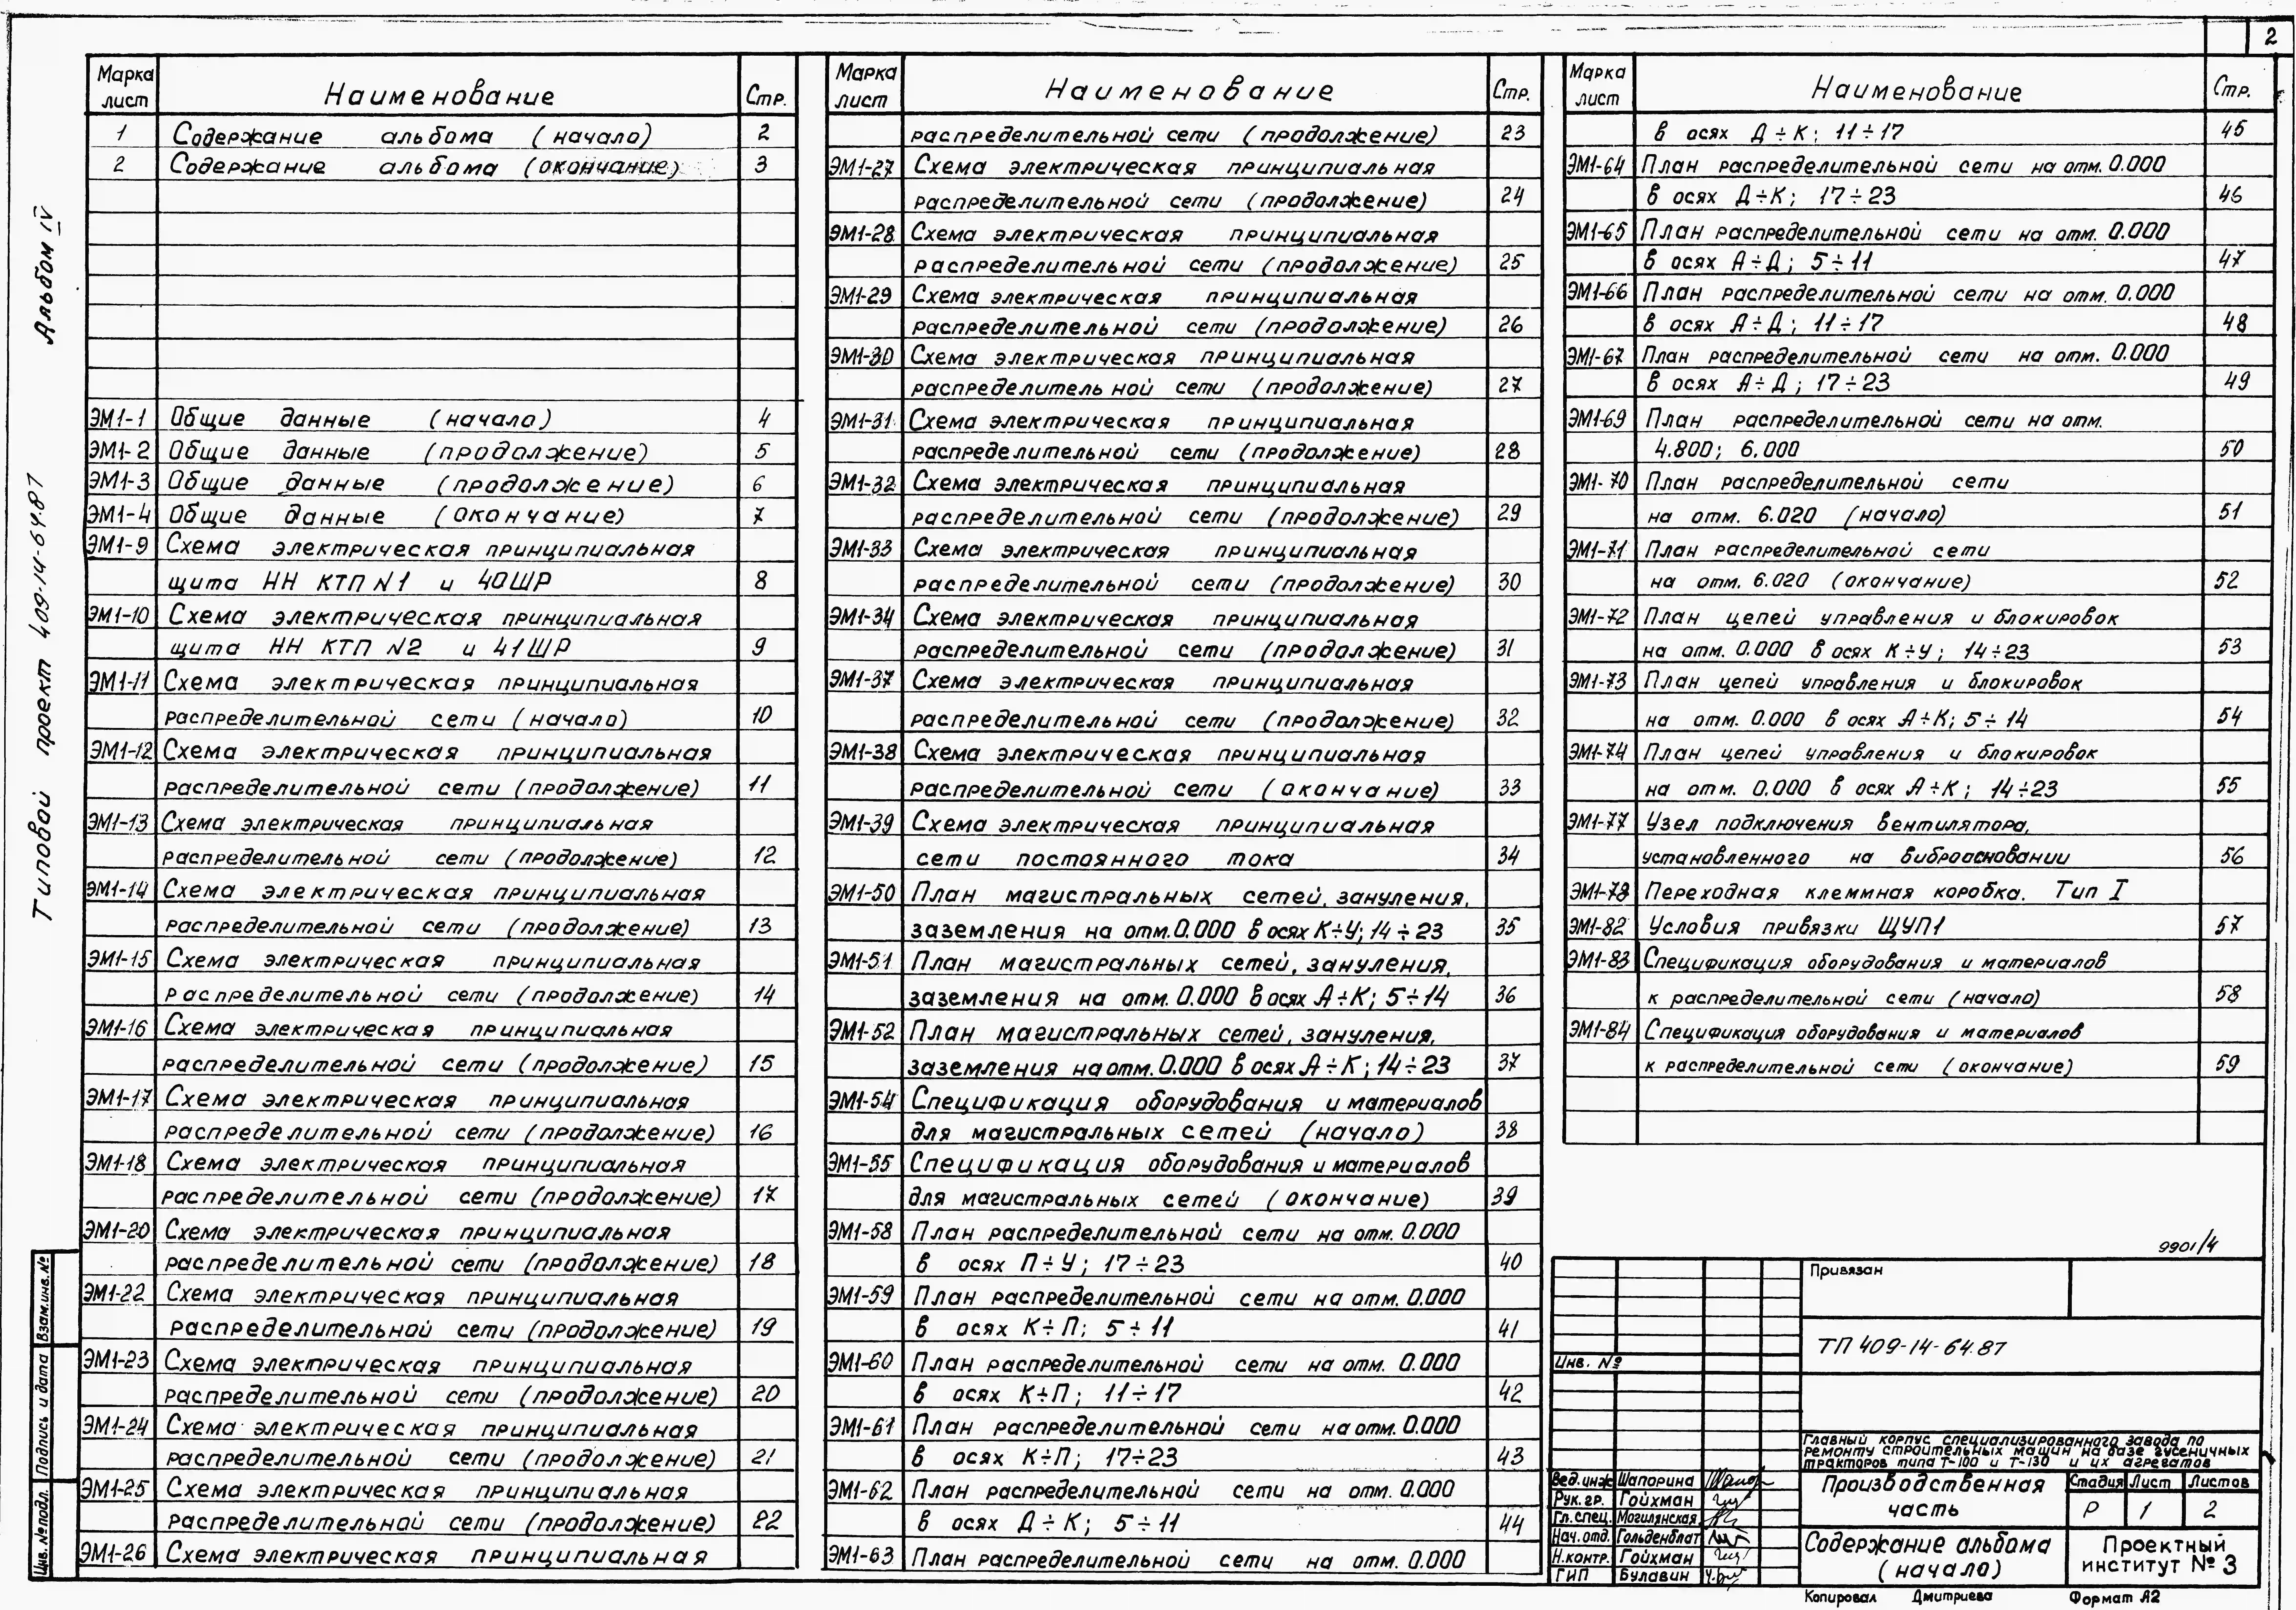 2
Марка лист Наименование Стр.
1 Содержание альбома (начало) 2
2 Содержание альбома (окончание) 3
ЭМ1-1 Общие данные (начало) 4
ЭМ1-2 Общие данные (продолжение) 5
ЭМ1-3 Общие данные (продолжение) 6
ЭМ1-4 Общие данные (окончание) 7
ЭМ1-9 Схема электрическая принципиальная
щита НН КТП N1 и 40ШР 8
ЭМ1-10 Схема электрическая принципиальная
щита НН КТП N2 и 41ШР 9
ЭМ1-11 Схема электрическая принципиальная
распределительной сети (начало) 10
ЭМ1-12 Схема электрическая принципиальная
распределительной сети (продолжение) 11
ЭМ1-13 Схема электрическая принципиальная
распределительной сети (продолжение) 12
ЭМ1-14 Схема электрическая принципиальная
распределительной сети (продолжение) 13
ЭМ1-15 Схема электрическая принципиальная
распределительной сети (продолжение) 14
ЭМ1-16 Схема электрическая принципиальная
распределительной сети (продолжение) 15
ЭМ1-17 Схема электрическая принципиальная
распределительной сети (продолжение) 16
ЭМ1-18 Схема электрическая принципиальная
распределительной сети (продолжение) 17
ЭМ1-20 Схема электрическая принципиальная
распределительной сети (продолжение) 18
ЭМ1-22 Схема электрическая принципиальная
распределительной сети (продолжение) 19
ЭМ1-23 Схема электрическая принципиальная
распределительной сети (продолжение) 20
ЭМ1-24 Схема электрическая принципиальная
распределительной сети (продолжение) 21
ЭМ1-25 Схема электрическая принципиальная
распределительной сети (продолжение) 22
ЭМ1-26 Схема электрическая принципиальная
Марка лист Наименование Стр.
распределительной сети (продолжение) 23
ЭМ1-27 Схема электрическая принципиальная
распределительной сети (продолжение) 24
ЭМ1-28 Схема электрическая принципиальная
распределительной сети (продолжение) 25
ЭМ1-29 Схема электрическая принципиальная
распределительной сети (продолжение) 26
ЭМ1-30 Схема электрическая принципиальная
распределительной сети (продолжение) 27
ЭМ1-31 Схема электрическая принципиальная
распределительной сети (продолжение) 28
ЭМ1-32 Схема электрическая принципиальная
распределительной сети (продолжение) 29
ЭМ1-33 Схема электрическая принципиальная
распределительной сети (продолжение) 30
ЭМ1-34 Схема электрическая принципиальная
распределительной сети (продолжение) 31
ЭМ1-37 Схема электрическая принципиальная
распределительной сети (продолжение) 32
ЭМ1-38 Схема электрическая принципиальная
распределительной сети (окончание) 33
ЭМ1-39 Схема электрическая принципиальная
сети постоянного тока 34
ЭМ1-50 План магистральных сетей, зануления,
заземления на отм. 0.000 в осях К÷У; 14÷23 35
ЭМ1-51 План магистральных сетей, зануления,
заземления на отм. 0.000 в осях А÷К; 5÷14 36
ЭМ1-52 План магистральных сетей, зануления,
заземления на отм. 0.000 в осях А÷К; 14÷23 37
ЭМ1-54 Спецификация оборудования и материалов
для магистральных сетей (начало) 38
ЭМ1-55 Спецификация оборудования и материалов
для магистральных сетей (окончание) 39
ЭМ1-58 План распределительной сети на отм. 0.000
в осях П÷У; 17÷23 40
ЭМ1-59 План распределительной сети на отм. 0.000
в осях К÷П; 5÷11 41
ЭМ1-60 План распределительной сети на отм. 0.000
в осях К÷П; 11÷17 42
ЭМ1-61 План распределительной сети на отм. 0.000
в осях К÷П; 17÷23 43
ЭМ1-62 План распределительной сети на отм. 0.000
в осях Д÷К; 5÷11 44
ЭМ1-63 План распределительной сети на отм. 0.000
Марка лист Наименование Стр.
в осях Д÷К; 11÷17 45
ЭМ1-64 План распределительной сети на отм. 0.000
в осях Д÷К; 17÷23 46
ЭМ1-65 План распределительной сети на отм. 0.000
в осях А÷Д; 5÷11 47
ЭМ1-66 План распределительной сети на отм. 0.000
в осях А÷Д; 11÷17 48
ЭМ1-67 План распределительной сети на отм. 0.000
в осях А÷Д; 17÷23 49
ЭМ1-69 План распределительной сети на отм.
4.800; 6.000 50
ЭМ1-70 План распределительной сети
на отм. 6.020 (начало) 51
ЭМ1-71 План распределительной сети
на отм. 6.020 (окончание) 52
ЭМ1-72 План цепей управления и блокировок
на отм. 0.000 в осях К÷У; 14÷23 53
ЭМ1-73 План цепей управления и блокировок
на отм. 0.000 в осях А÷К; 5÷14 54
ЭМ1-74 План цепей управления и блокировок
на отм. 0.000 в осях А÷К; 14÷23 55
ЭМ1-77 Узел подключения вентилятора,
установленного на виброосновании 56
ЭМ1-78 Переходная клеммная коробка. Тип I
ЭМ1-82 Условия привязки ЩУП1 57
ЭМ1-83 Спецификация оборудования и материалов
к распределительной сети (начало) 58
ЭМ1-84 Спецификация оборудования и материалов
к распределительной сети (окончание) 59
9901/4
Привязан
Инв. №
ТП 409-14-64.87
Главный корпус специализированного завода по
ремонту строительных машин на базе гусеничных
тракторов типа Т-100 и Т-130 и их агрегатов
Вед.инж Шапорина
Рук. гр. Гойхман
Гл.спец. Могилянская
Нач.отд. Гольденблат
Н.контр. Гойхман
ГИП Булавин
Производственная
часть
Стадия Лист Листов
Р 1 2
Содержание альбома
(начало)
Проектный
институт № 3
Копировал Дмитриева Формат А2
Типовой проект 409-14-64.87 Альбом IV
Взам.инв.№
Подпись и дата
Инв. № подл.